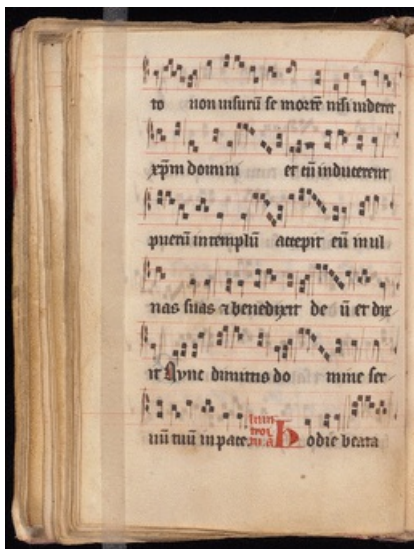 to non visurū se mortē nisi videret
xp̄m domini et cū inducerent
puerū in templū accepit eū in ul
nas suas ⁊ benedixit de ū et dix
it Nync dimittis do mine ser
uū tuū in pace. H odie beata